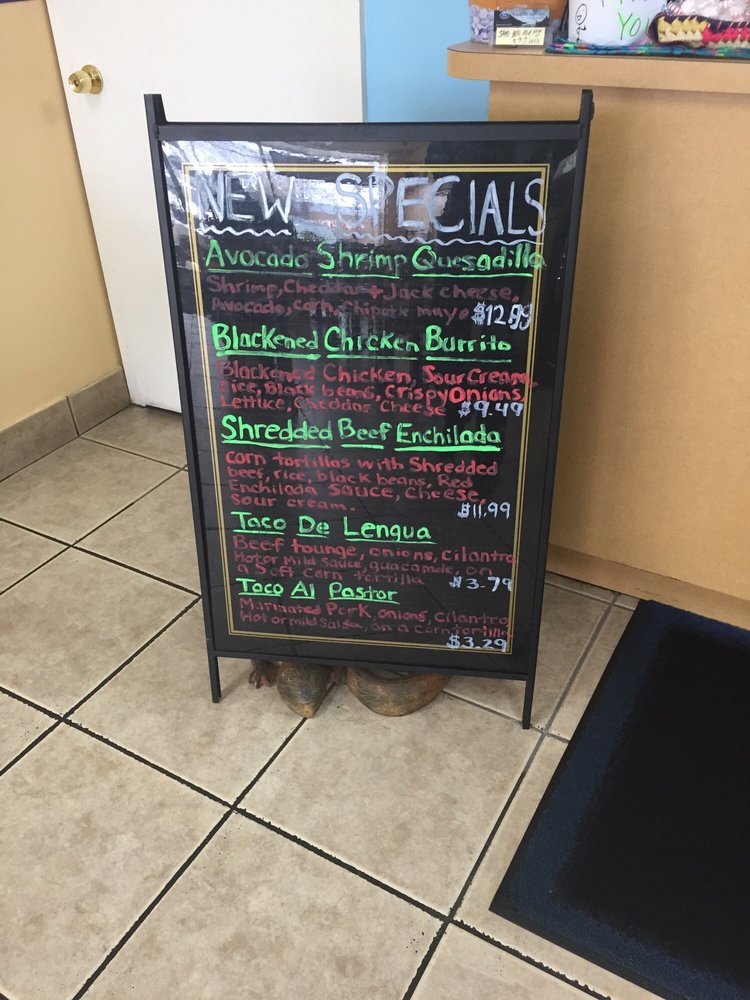 YO
NEW SPECIALS
Avocado Shrimp Quesadilla
Shrimp, Cheddar + Jack cheese,
Avocado, corn, chipotle mayo $12.99
Blackened Chicken Burrito
Blackened Chicken, Sour Cream,
Rice, Black beans, Crispy Onions,
Lettuce, Cheddar Cheese $9.49
Shredded Beef Enchilada
corn tortillas with Shredded
beef, rice, black beans, Red
Enchilada Sauce, Cheese,
Sour cream. $11.99
Taco De Lengua
Beef tounge, onions, cilantro
Hot or Mild Sauce, guacamole, on
a Soft Corn tortilla $3.79
Taco Al Pastor
Marinated Pork, onions, cilantro,
Hot or mild Salsa, on a corn tortilla
$3.29